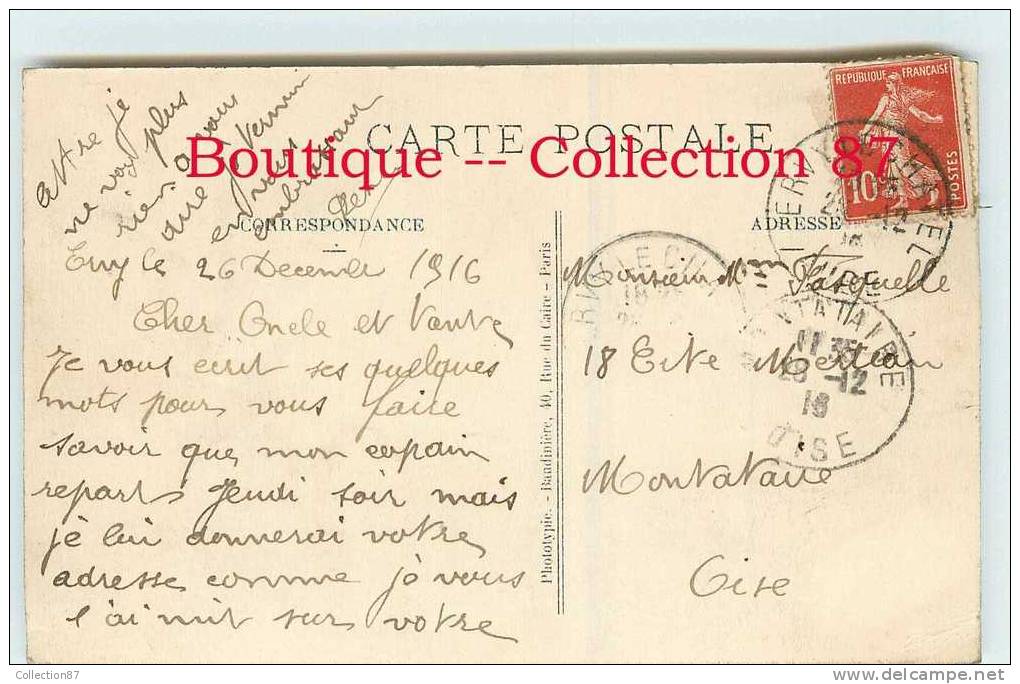 RÉPUBLIQUE FRANÇAISE
POSTES
10c
CARTE POSTALE
Boutique -- Collection 87
CORRESPONDANCE
ADRESSE
Ervy le 26 Decembre 1916
Cher Oncle et Tante
Je vous ecrit ses quelques
mots pour vous faire
savoir que mon copain
repart Jeudi soir mais
je lui donnerai votre
adresse comme je vous
l'ai mit sur votre
lettre je
ne voy plus
rien a vous
dire
en vous
embrassant
Phototypie. - Baudinière, 40, Rue du Caire - Paris
Monsieur Pasquelle
18 Cite Mertian
Montataire
Oise
ERVY-LE-CHATEL
AUBE
MONTATAIRE
28 -12
16
OISE
Collection87
www.delcampe.net